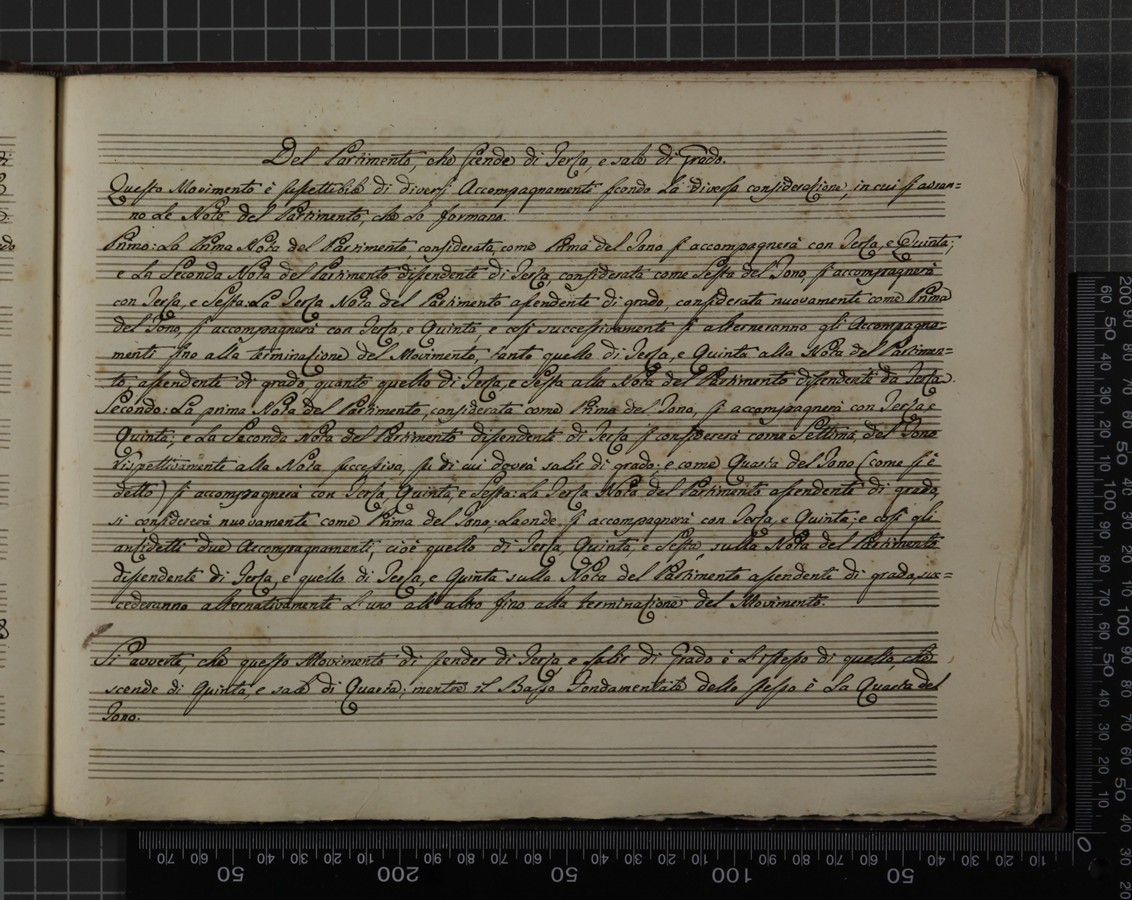 Del Partimento, che scende di Terza, e sale di Grado.
Questo Movimento è suscettibile di diversi Accompagnamenti secondo la diversa considerazione, in cui si avran=
no le Note del Partimento, che lo formano.
Primo: La Prima Nota del Partimento, considerata, come Prima del Tono si accompagnerà con Terza, e Quinta;
e la Seconda Nota del Partimento discendente di Terza, considerata come Sesta del Tono, si accompagnerà
con Terza, e Sesta: La Terza Nota del Partimento ascendente di grado, considerata nuovamente come Prima
del Tono, si accompagnerà con Terza, e Quinta, e così successivamente si alterneranno gli Accompagna=
menti fino alla terminazione del Movimento, tanto quello di Terza, e Quinta alla Nota del Partimen=
to, ascendente di grado, quanto quello di Terza, e Sesta alla Nota del Partimento discendente da Terza.
Secondo: La prima Nota del Partimento, considerata come Prima del Tono, si accompagnerà con Terza, e
Quinta; e la Seconda Nota del Partimento discendente di Terza si considererà come Settima del Tono
rispettivamente alla Nota successiva, su di cui dovrà salir di grado; e come Quarta del Tono (come si è
detto) si accompagnerà con Terza, Quinta, e Sesta: La Terza Nota del Partimento ascendente di grado,
si considererà nuovamente come Prima del Tono; Laonde si accompagnerà con Terza, e Quinta; e così gli
ansidetti due Accompagnamenti, cioè quello di Terza, Quinta, e Sesta sulla Nota del Partimento
discendente di Terza, e quello di Terza, e Quinta sulla Nota del Partimento ascendente di grado, suc=
cederanno alternativamente l'uno all'altro fino alla terminazione del Movimento.
Si avverte, che questo Movimento di scender di Terza e salir di Grado è l'istesso di quello, che
scende di Quinta, e sale di Quarta; mentre il Basso Fondamentale dello stesso è la Quarta del
Tono.